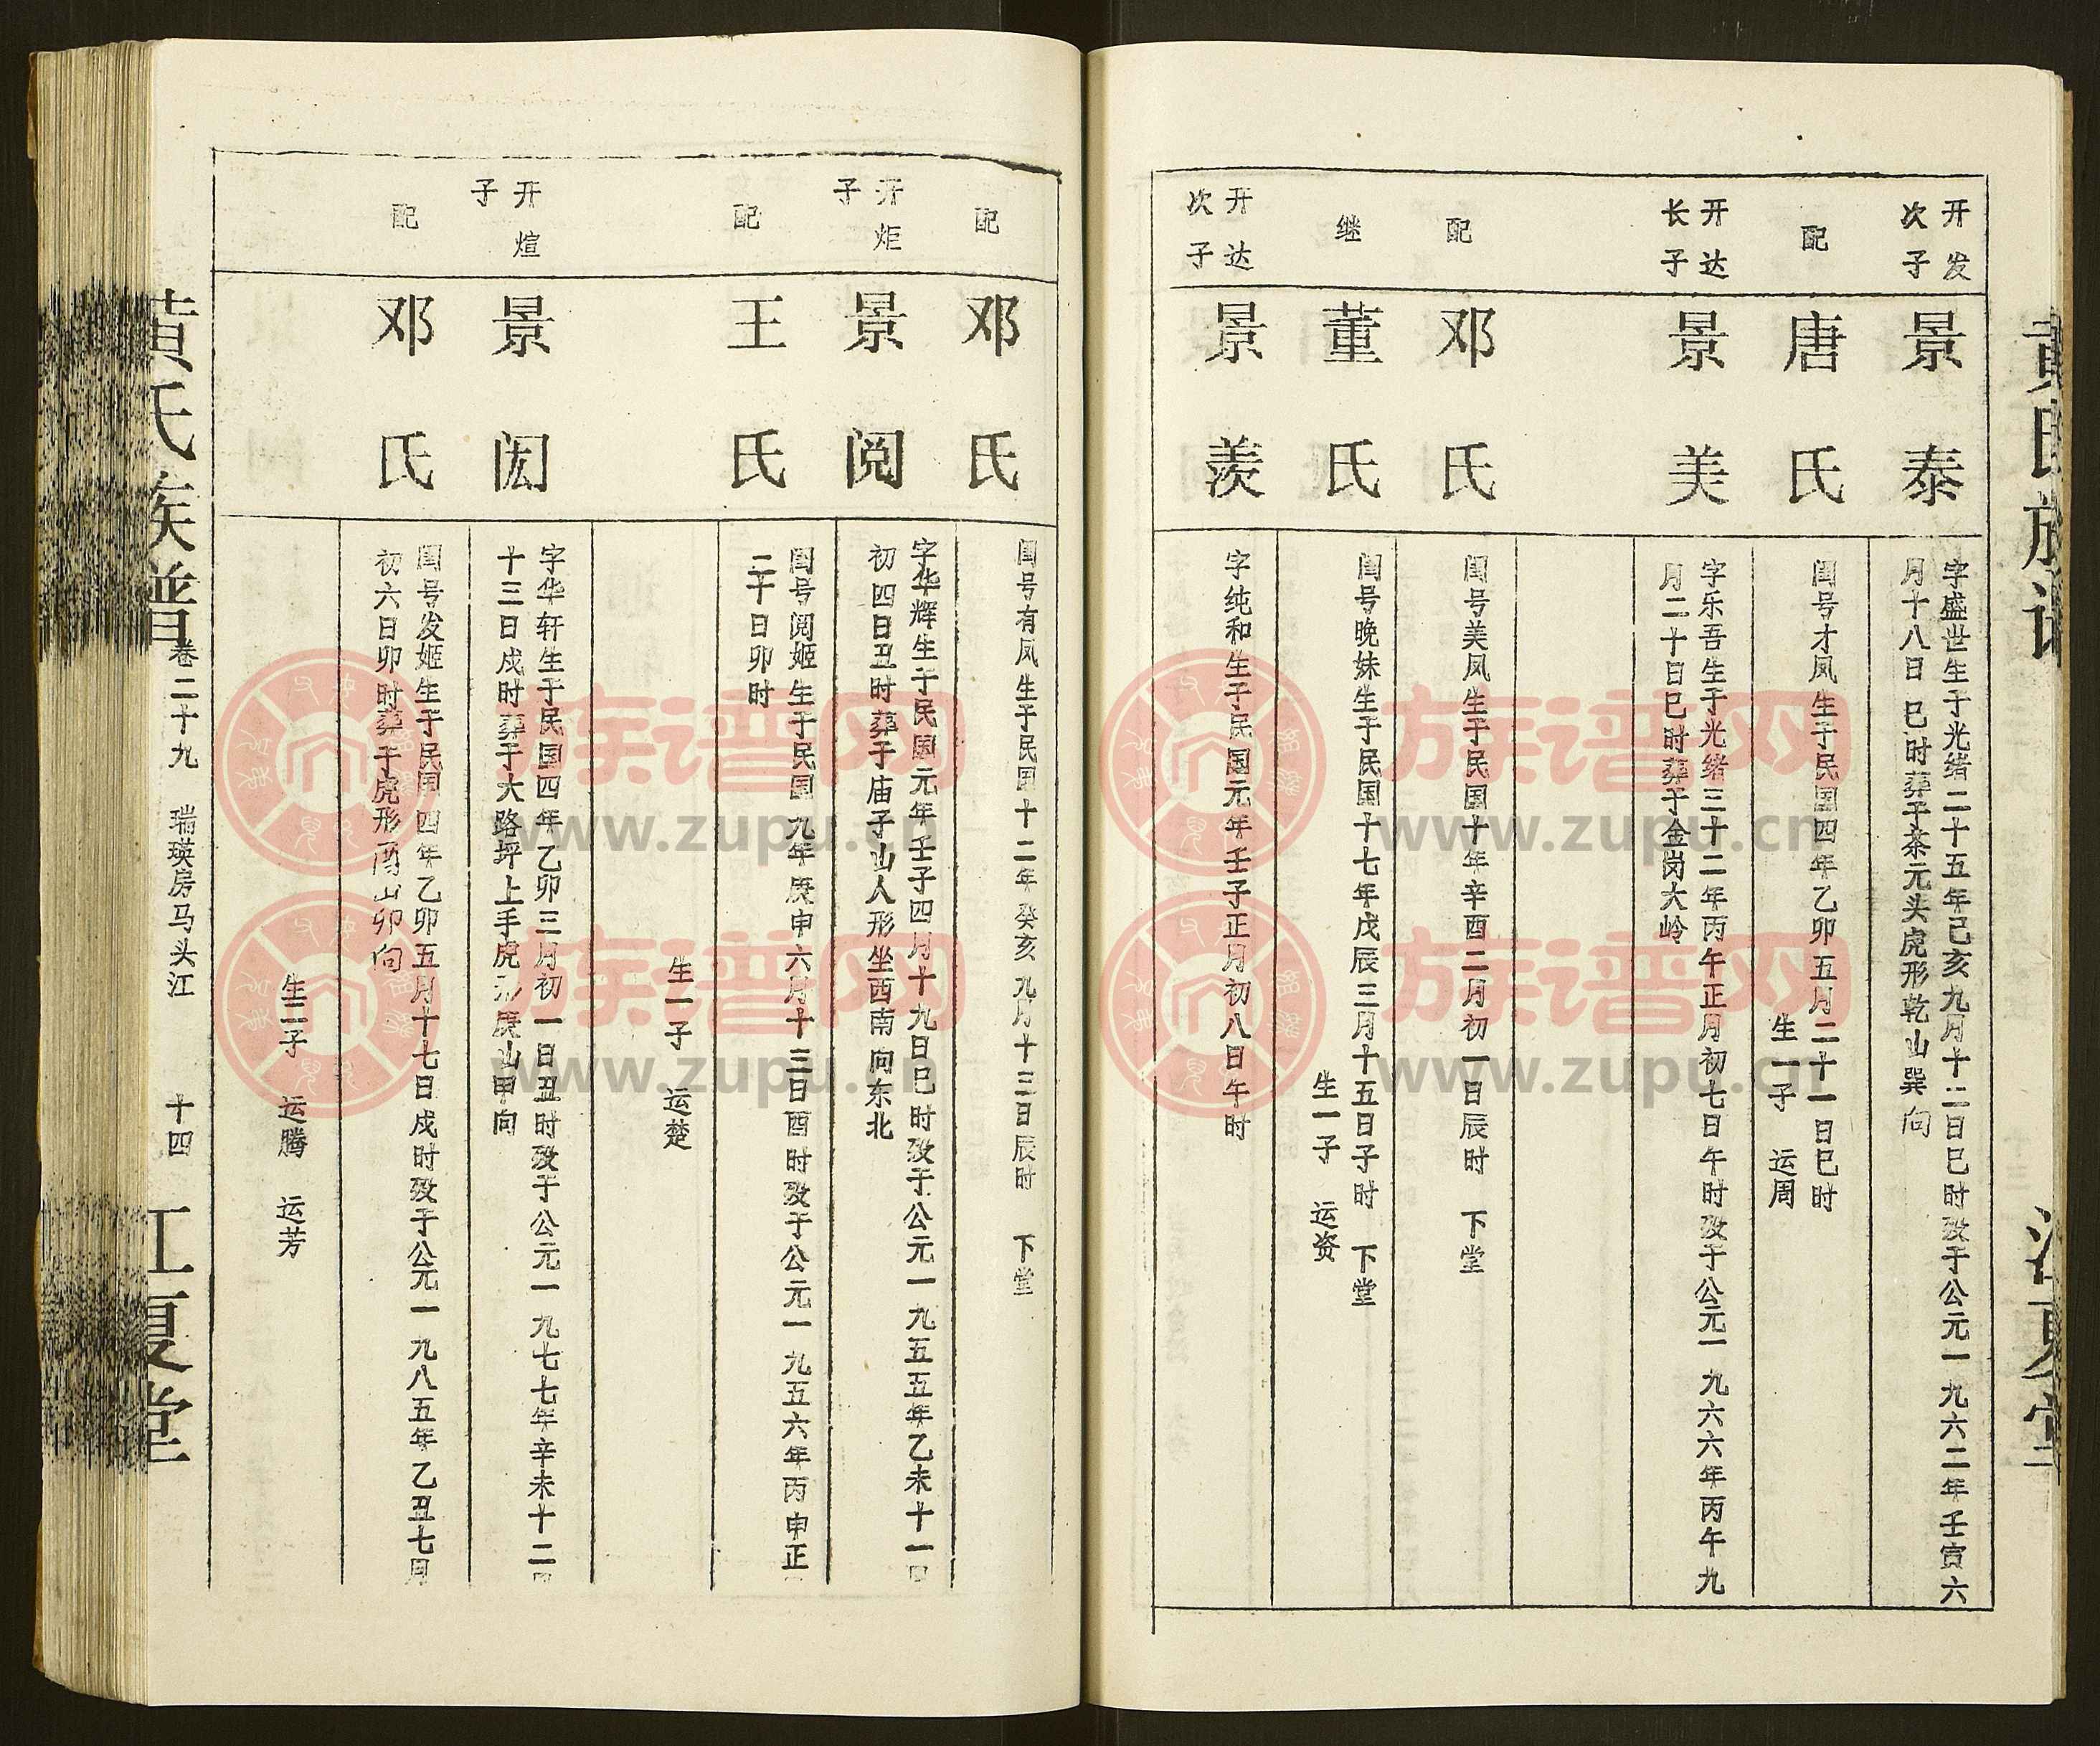 黄氏族谱
江夏堂
开发
次子
景泰
字盛世生于光绪二十五年己亥九月十二日巳时殁于公元一九六二年壬寅六
月十八日巳时葬于茶元头虎形乾山巽向
配
唐氏
闺号才凤生于民国四年乙卯五月二十一日巳时
生一子 运周
开达
长子
景美
字乐吾生于光绪三十二年丙午正月初七日午时殁于公元一九六六年丙午九
月二十日巳时葬于金岗大岭
配
邓氏
闺号美凤生于民国十年辛酉二月初一日辰时 下堂
继
董氏
闺号晚妹生于民国十七年戊辰三月十五日子时 下堂
生一子 运资
开达
次子
景羡
字纯和生于民国元年壬子正月初八日午时
配
邓氏
闺号有凤生于民国十二年癸亥九月十三日辰时 下堂
开炬
子
景阅
字华辉生于民国元年壬子四月十九日巳时殁于公元一九五五年乙未十一月
初四日丑时葬于庙子山人形坐西南向东北
配
王氏
闺号阅姬生于民国九年庚申六月十三日酉时殁于公元一九五六年丙申正
二十日卯时
生一子 运楚
开煊
子
景闳
字华轩生于民国四年乙卯三月初一日丑时殁于公元一九七七年辛未十二月
十三日戌时葬于大路坪上手虎形庚山甲向
配
邓氏
闺号发姬生于民国四年乙卯五月十七日戌时殁于公元一九八五年乙丑七月
初六日卯时葬于虎形酉山卯向
生二子 运腾 运芳
黄氏族谱 卷二十九 瑞瑛房马头江 十四 江夏堂
族谱网
www.zupu.cn
族谱网
www.zupu.cn
族谱网
www.zupu.cn
族谱网
www.zupu.cn